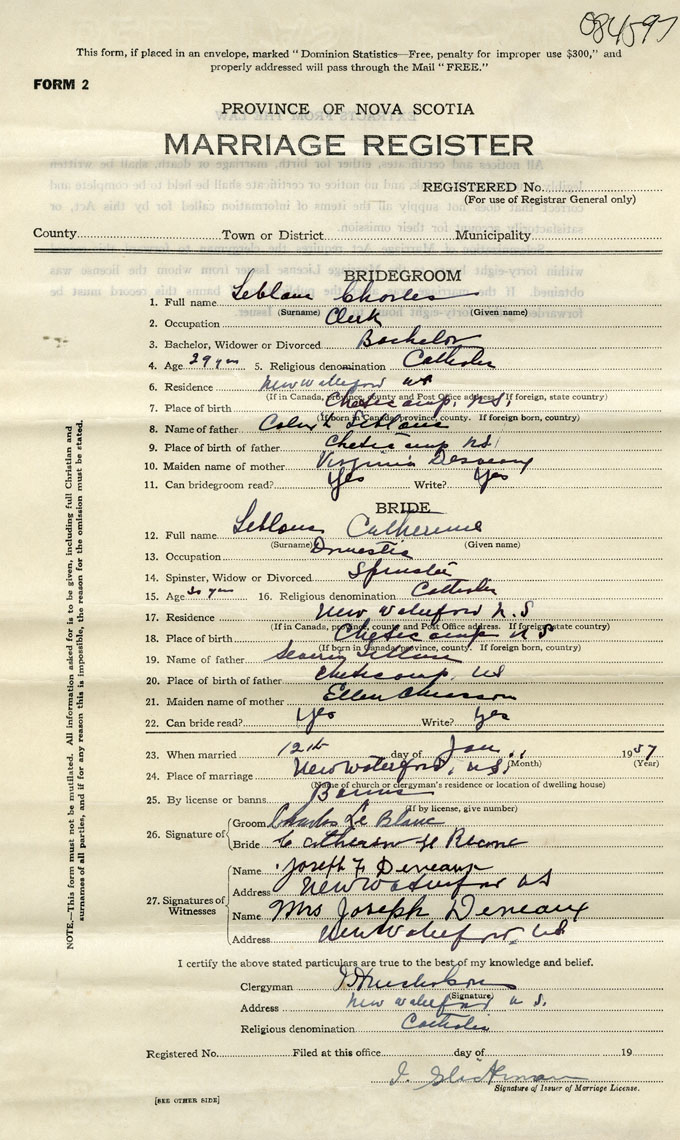 084597
This form, if placed in an envelope, marked "Dominion Statistics—Free, penalty for improper use $300," and
properly addressed will pass through the Mail "FREE."
FORM 2
PROVINCE OF NOVA SCOTIA
MARRIAGE REGISTER
REGISTERED No.
(For use of Registrar General only)
County Town or District Municipality
BRIDEGROOM
1. Full name Leblanc Charles
(Surname) (Given name)
2. Occupation Clerk
3. Bachelor, Widower or Divorced Bachelor
4. Age 29 yrs 5. Religious denomination Catholic
6. Residence New Waterford NS
(If in Canada, province, county and Post Office address. If foreign, state country)
7. Place of birth Cheticamp, N.S.
(If born in Canada, province, county. If foreign born, country)
8. Name of father Leblanc
9. Place of birth of father Cheticamp N.S.
10. Maiden name of mother Virginia
11. Can bridegroom read? Yes Write? Yes
BRIDE
12. Full name Leblanc Catherine
(Surname) (Given name)
13. Occupation Domestic
14. Spinster, Widow or Divorced Spinster
15. Age 30 yrs 16. Religious denomination Catholic
17. Residence New Waterford N.S
(If in Canada, province, county and Post Office address. If foreign, state country)
18. Place of birth Cheticamp N S
(If born in Canada, province, county. If foreign born, country)
19. Name of father Leblanc
20. Place of birth of father Cheticamp, NS
21. Maiden name of mother Ellen Chiasson
22. Can bride read? Yes Write? Yes
23. When married 12th day of Jan. 1937
(Month) (Year)
24. Place of marriage New Waterford, N.S.
(Name of church or clergyman's residence or location of dwelling house)
25. By license or banns Banns
(If by license, give number)
26. Signature of Groom Charles Le Blanc
Bride Catherine
27. Signatures of Witnesses
Name Joseph F Deveaux
Address New Waterford NS
Name Mrs Joseph Deveaux
Address New Waterford, NS
I certify the above stated particulars are true to the best of my knowledge and belief.
Clergyman
(Signature)
Address New Waterford N.S.
Religious denomination Catholic
Registered No. Filed at this office day of 19
Signature of Issuer of Marriage License.
[SEE OTHER SIDE]
NOTE.—This form must not be mutilated. All information asked for is to be given, including full Christian and
surnames of all parties, and if for any reason this is impossible, the reason for the omission must be stated.